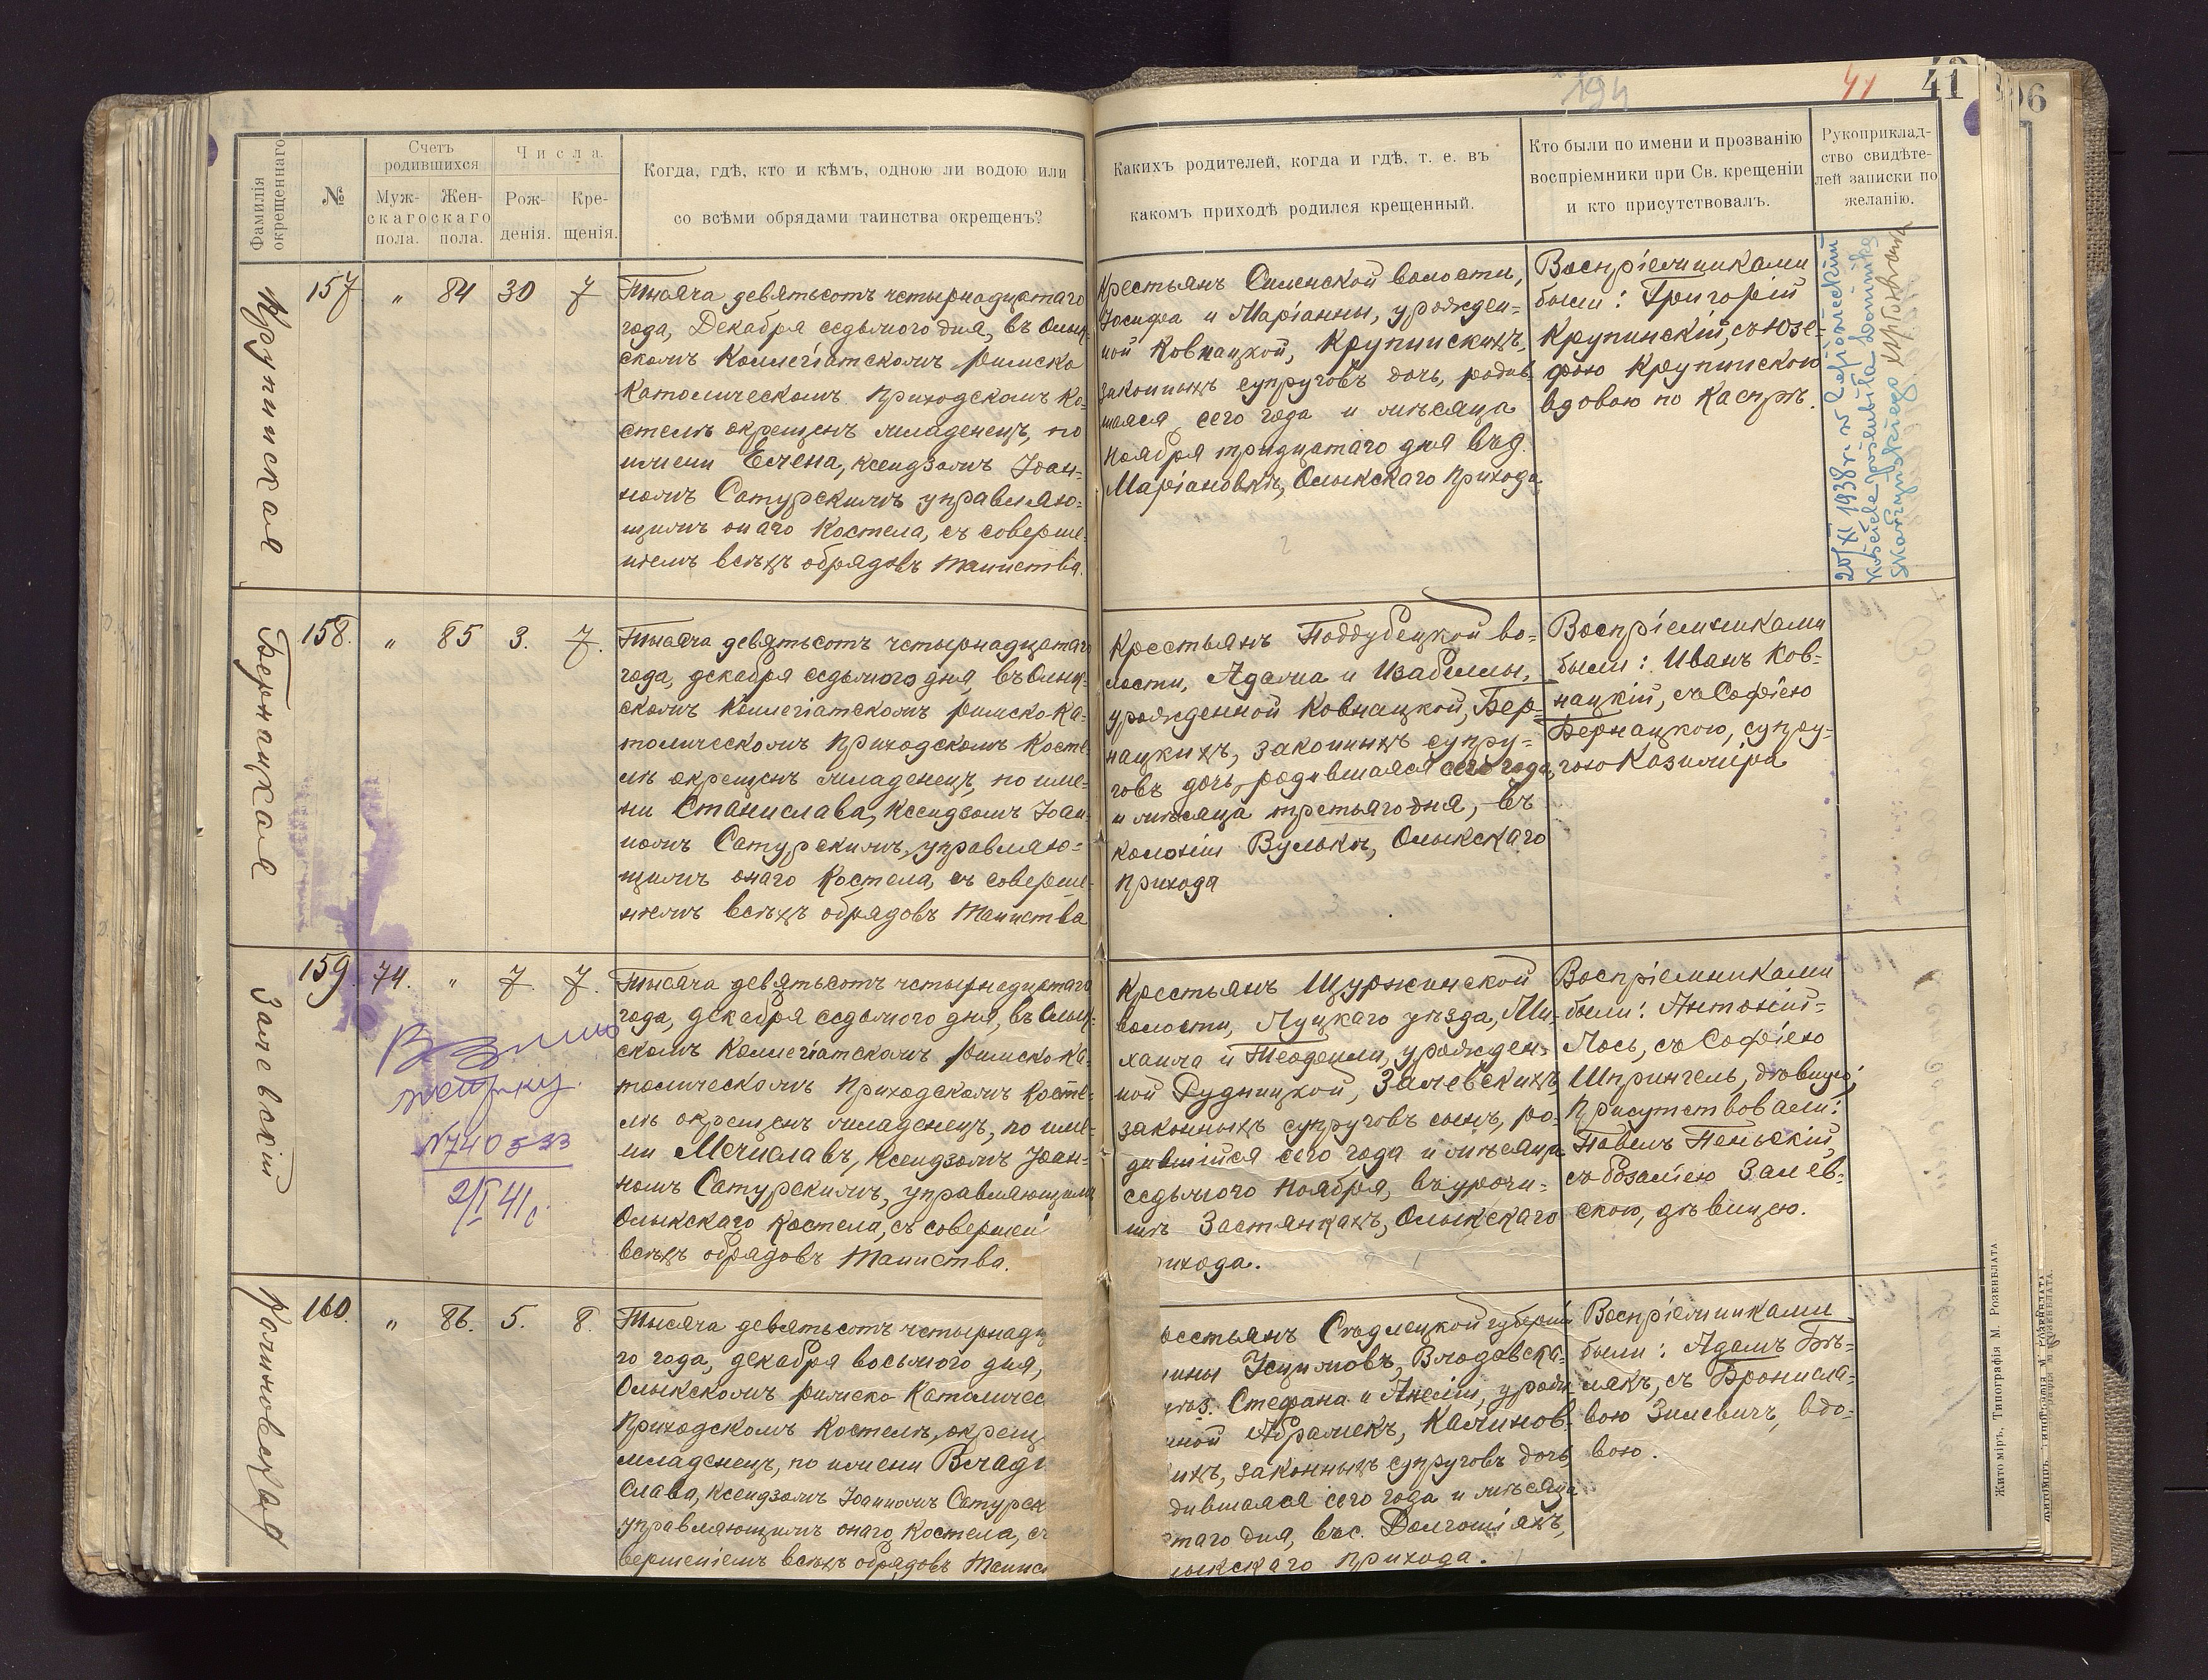 194
41
41
96
Фамилія окрещеннаго
№
Счетъ родившихся
Муж-скаго пола.
Жен-скаго пола.
Числа.
Рож-денія.
Кре-щенія.
Когда, гдѣ, кто и кѣмъ, одною ли водою или
со всѣми обрядами таинства окрещенъ?
Какихъ родителей, когда и гдѣ, т. е. въ
какомъ приходѣ родился крещенный.
Кто были по имени и прозванію
воспріемники при Св. крещеніи
и кто присутствовалъ.
Рукоприклад-
ство свидѣте-
лей записки по
желанію.
Крупинская
157 " 84 30 7
Тысяча девятьсотъ четырнадцатаго
года, Декабря седьмого дня, въ Олык-
скомъ Коллегіатскомъ римско
Католическомъ Приходскомъ Ко-
стелѣ окрещенъ младенецъ, по
имени Елена, ксендзомъ Іоан-
номъ Сатурскимъ управляю-
щимъ онаго Костела, съ соверше-
ніемъ всѣхъ обрядовъ Таинства.
Крестьянъ Олыкской волости,
Іосифа и Маріанны, урожден-
ной Ковнацкой, Крупинскихъ,
законныхъ супруговъ дочь, родив-
шаяся сего года и мѣсяца
Ноября тридцатаго дня въ д.
Маріановкѣ, Олыкскаго Прихода
Воспріемниками
были: Григорій
Крупинскій, съ Юзе-
фою Крупинскою
вдовою по Каспрѣ.
20/XI 1938 r. w
kościele poślubiła Dominika
Skarżyńskiego
Бернацкая
158. " 85 3. 7.
Тысяча девятьсотъ четырнадцатаго
года, декабря седьмого дня, въ Олык-
скомъ Коллегіатскомъ римско-ка-
толическомъ Приходскомъ Косте-
лѣ окрещенъ младенецъ, по име-
ни Станислава, ксендзомъ Іоан-
номъ Сатурскимъ, управляю-
щимъ онаго Костела, съ соверше-
ніемъ всѣхъ обрядовъ Таинства
Крестьянъ Поддубецкой во-
лости, Адама и Изабеллы,
урожденной Ковнацкой, Бер-
нацкихъ, законныхъ супру-
говъ дочь, родившаяся сего года
и мѣсяца третьяго дня, въ
колоніи Вулькѣ, Олыкскаго
Прихода
Воспріемниками
были: Иванъ Ков-
нацкій, съ Софіею
Бернацкою, супру-
гою Казиміра
Залевскій
159. 74. " 7. 7.
Тысяча девятьсотъ четырнадцатаго
года, декабря седьмого дня, въ Олык-
скомъ Коллегіатскомъ римско-ка-
толическомъ Приходскомъ Косте-
лѣ окрещенъ младенецъ, по име-
ни Мечиславъ, ксендзомъ Іоан-
номъ Сатурскимъ, управляющимъ
Олыкскаго Костела, съ совершен
всѣхъ обрядовъ Таинства.
метрику
N740533
2/I 41
Крестьянъ Щуринской
волости, Луцкаго уѣзда, Ми-
хаила и Теофили, урожден-
ной Рудницкой, Залевскихъ
законныхъ супруговъ сынъ, ро-
дившійся сего года и мѣсяца
седьмого Ноября, въ урочи-
щѣ Застянкахъ, Олыкскаго
рихода.
Воспріемниками
были: Антоній-
Лось, съ Софіею
Шпрингель, дѣвицею;
Присутствовали:
Павелъ Пеньскій
съ Розаліею Залев-
скою, дѣвицею.
Калиновская
160. " 86. 5. 8.
Тысяча девятьсотъ четырнадц
го года, декабря восьмого дня,
Олыкскомъ римско Католичес
Приходскомъ Костелѣ, окрещ
младенецъ, по имени Влади
слава, ксендзомъ Іоанномъ Сатурск
управляющимъ онаго Костела, съ
вершеніемъ всѣхъ обрядовъ Таинс
рестьянъ Сѣдлецкой губерніи
мины Усцимовъ, Влодавска-
уѣз. Стефана и Анеліи, урожд
нной Абрамекъ, Калинов-
ихъ, законныхъ супруговъ дочь
дившаяся сего года и мѣсяца
таго дня, въ с. Долгошіяхъ,
лыкскаго Прихода.
Воспріемниками
были: Адамъ Бѣ-
лякъ, съ Брониcла-
вою Зилевичъ, вдо-
вою.
Житоміръ, Типографія М. Розенблата